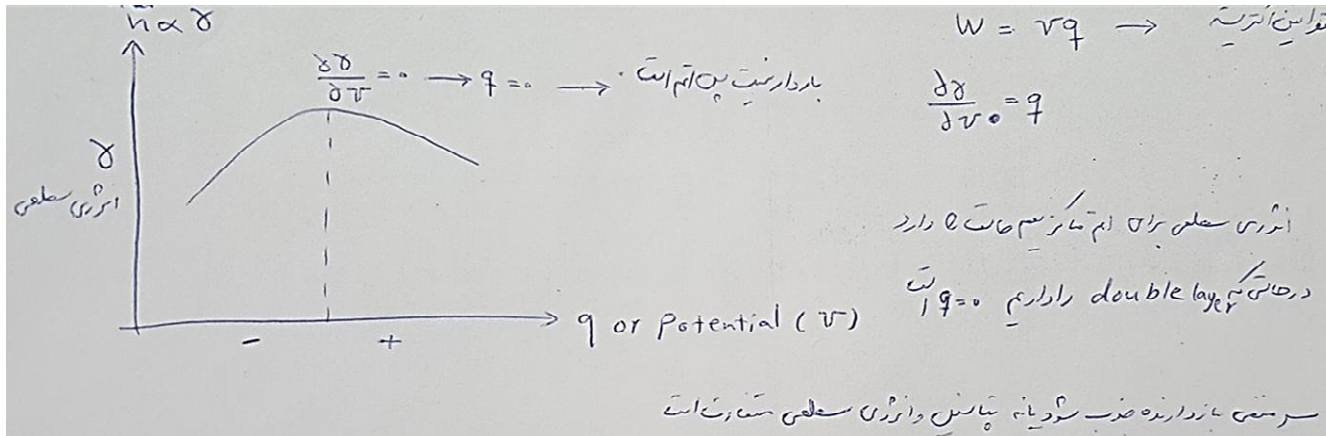 h ∝ γ
W = vq → قوانین
∂γ/∂v = 0 → q = 0 → باردار نیست پس اتم است.
∂γ/∂v = q
γ
انرژی سطحی
انرژی سطحی برای اتم ماکزیمم حالت e دارد
در حالتی که double layer را داریم q=0 است
q or potential (v)
- +
سر منفی بازدارنده جذب شود یا نه پتانسیل و انرژی سطحی متفاوت است